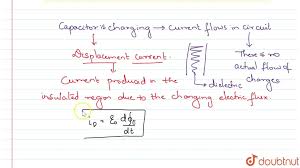 Capacitor is changing → current flows in circuit
Displacement current.
There is no
actual flow of
charges
dielectric
Current produced in the
insulated region due to the changing electric flux.
i_D = ε_0 dϕ_E/dt
doubtnut